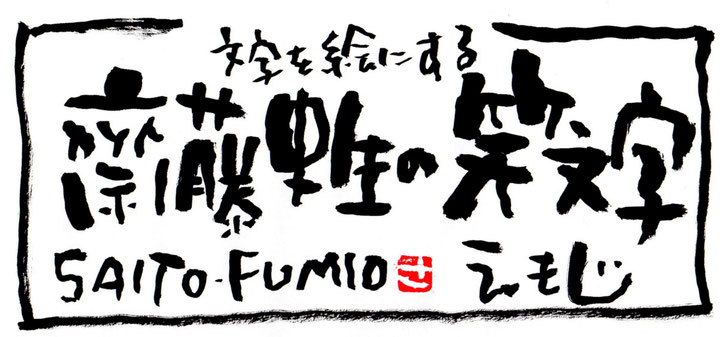 文字を絵にする
齋藤史生の笑文字
SAITO-FUMIO えもじ